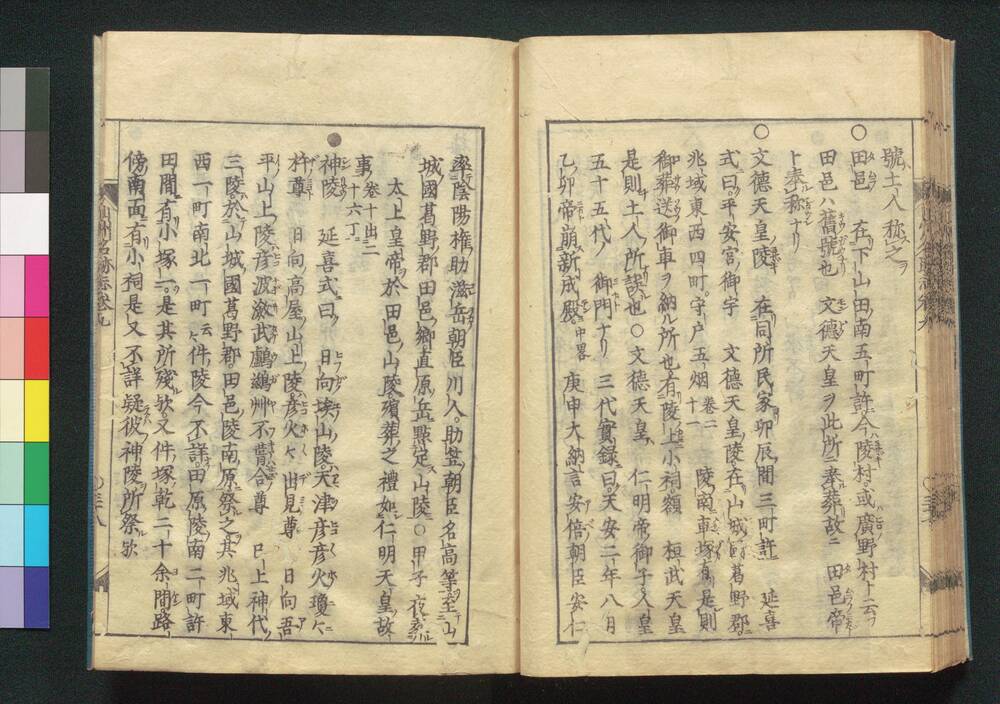 號土人称之ヲ
○田邑 在下山田南五町許今陵村或廣野村ト云フ
田邑ハ舊號也 文徳天皇ヲ此所ニ奉葬故ニ 田邑帝
ト奉称ナリ
○文徳天皇陵 在同所民家卯辰間三町許 延喜
式曰平安宮御宇 文徳天皇陵在山城國葛野郡
兆域東西四町守戸五烟 巻二十一 陵南車塚有是則
御葬送御車ヲ納ル所也有陵上小祠額 桓武天皇
是則土人所誤也○文徳天皇 仁明帝御子人皇
五十五代ノ 御門ナリ 三代實録曰天安二年八月
乙卯帝崩新成殿 中畧 庚申大納言安倍朝臣安仁
率陰陽権助滋岳朝臣川人助笠朝臣名高等至山
城國葛野郡田邑郷直原岳點定山陵○甲子夜
太上皇帝於田邑山陵殯葬之禮如仁明天皇故
事 巻十出二十六丁
●神陵 延喜式曰 日向埃山陵天津彦彦火瓊々
杵尊 日向高屋山上陵彦火々出見尊 日向吾
平山上陵彦波瀲武鸕鷀州不葺合尊 已上神代
三陵於山城國葛野郡田邑陵南原祭之其兆域東
西一町南北一町云件陵今不詳田原陵南二町許
田間有小塚二是其所殘歟又件塚乾二十余間路
傍南面有小祠是又不詳疑彼神陵所祭欤